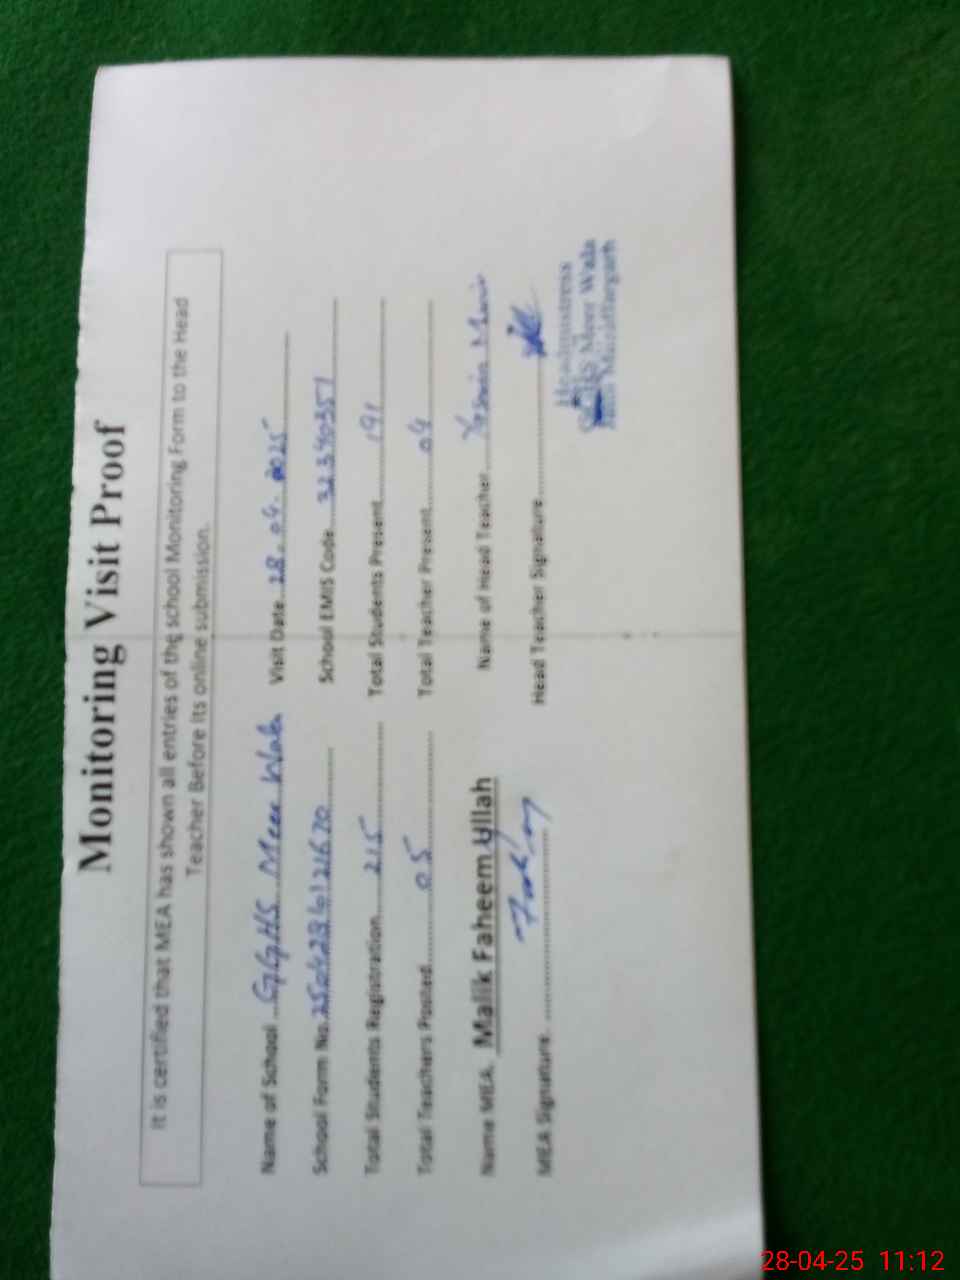 Monitoring Visit Proof
It is certified that MEA has shown all entries of the school Monitoring Form to the Head
Teacher Before its online submission.
Name of School ...GGHS Meer Wala Visit Date..28.04.2025
School Form No.250428612670 School EMIS Code...32340351
Total Students Registration....215 Total Students Present....191
Total Teachers Posted....05 Total Teacher Present....04
Name MEA. Malik Faheem Ullah Name of Head Teacher....Yasmin
MEA Signature. Head Teacher Signature
Headmistress
Meer Wala
28-04-25 11:12